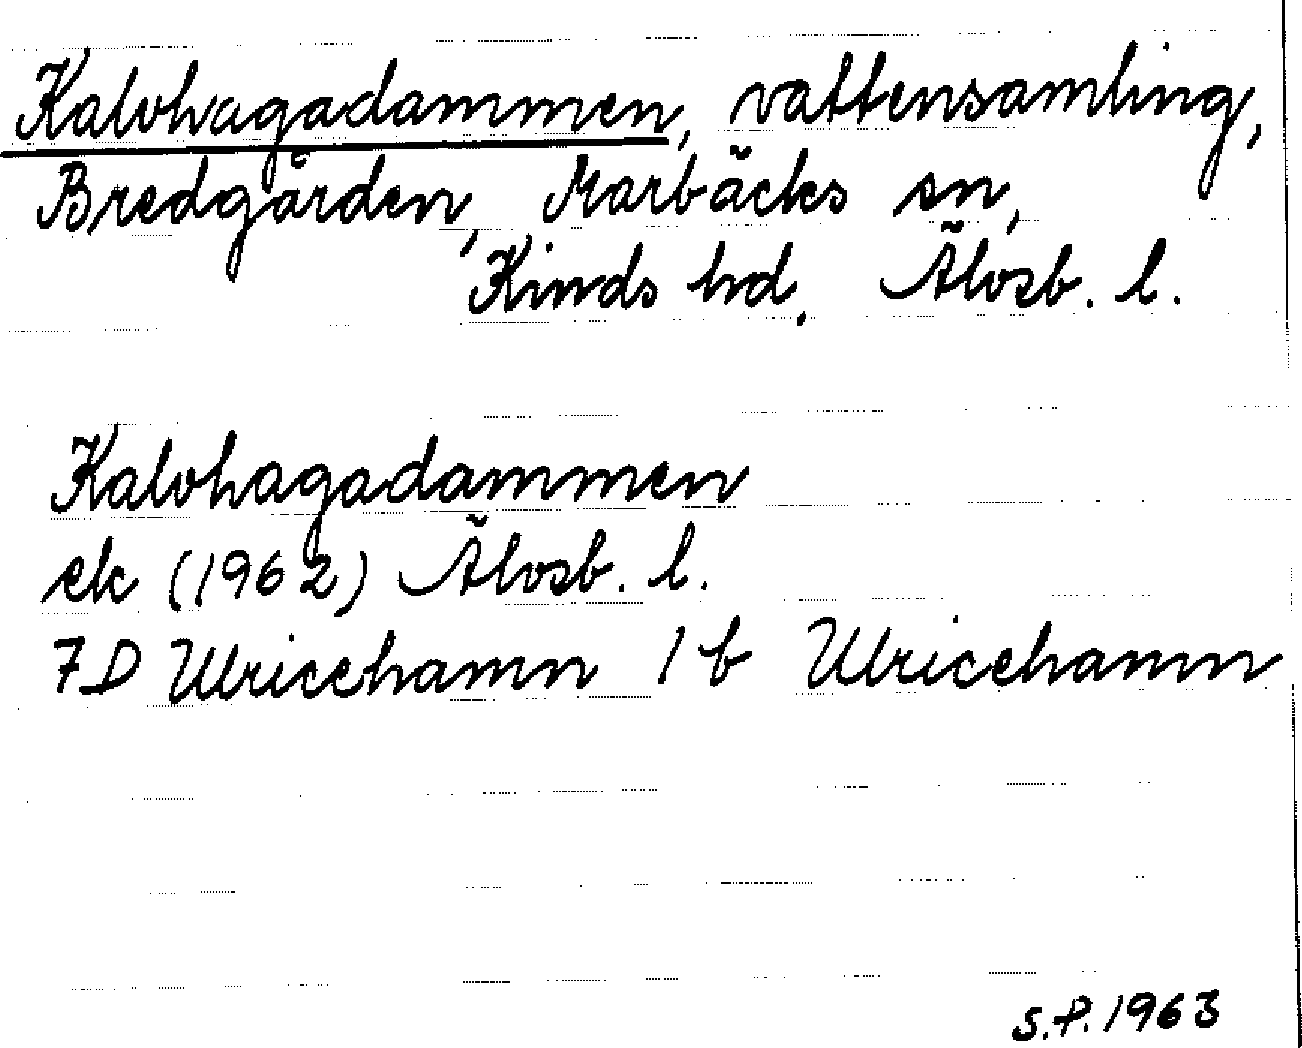 Kalvhagadammen, vattensamling,
Bredgården, Marbäcks sn,
Kinds hd, Älvsb. l.
Kalvhagadammen
ek (1962) Älvsb. l.
7D Ulricehamn 1 b Ulricehamn
S.P. 1963